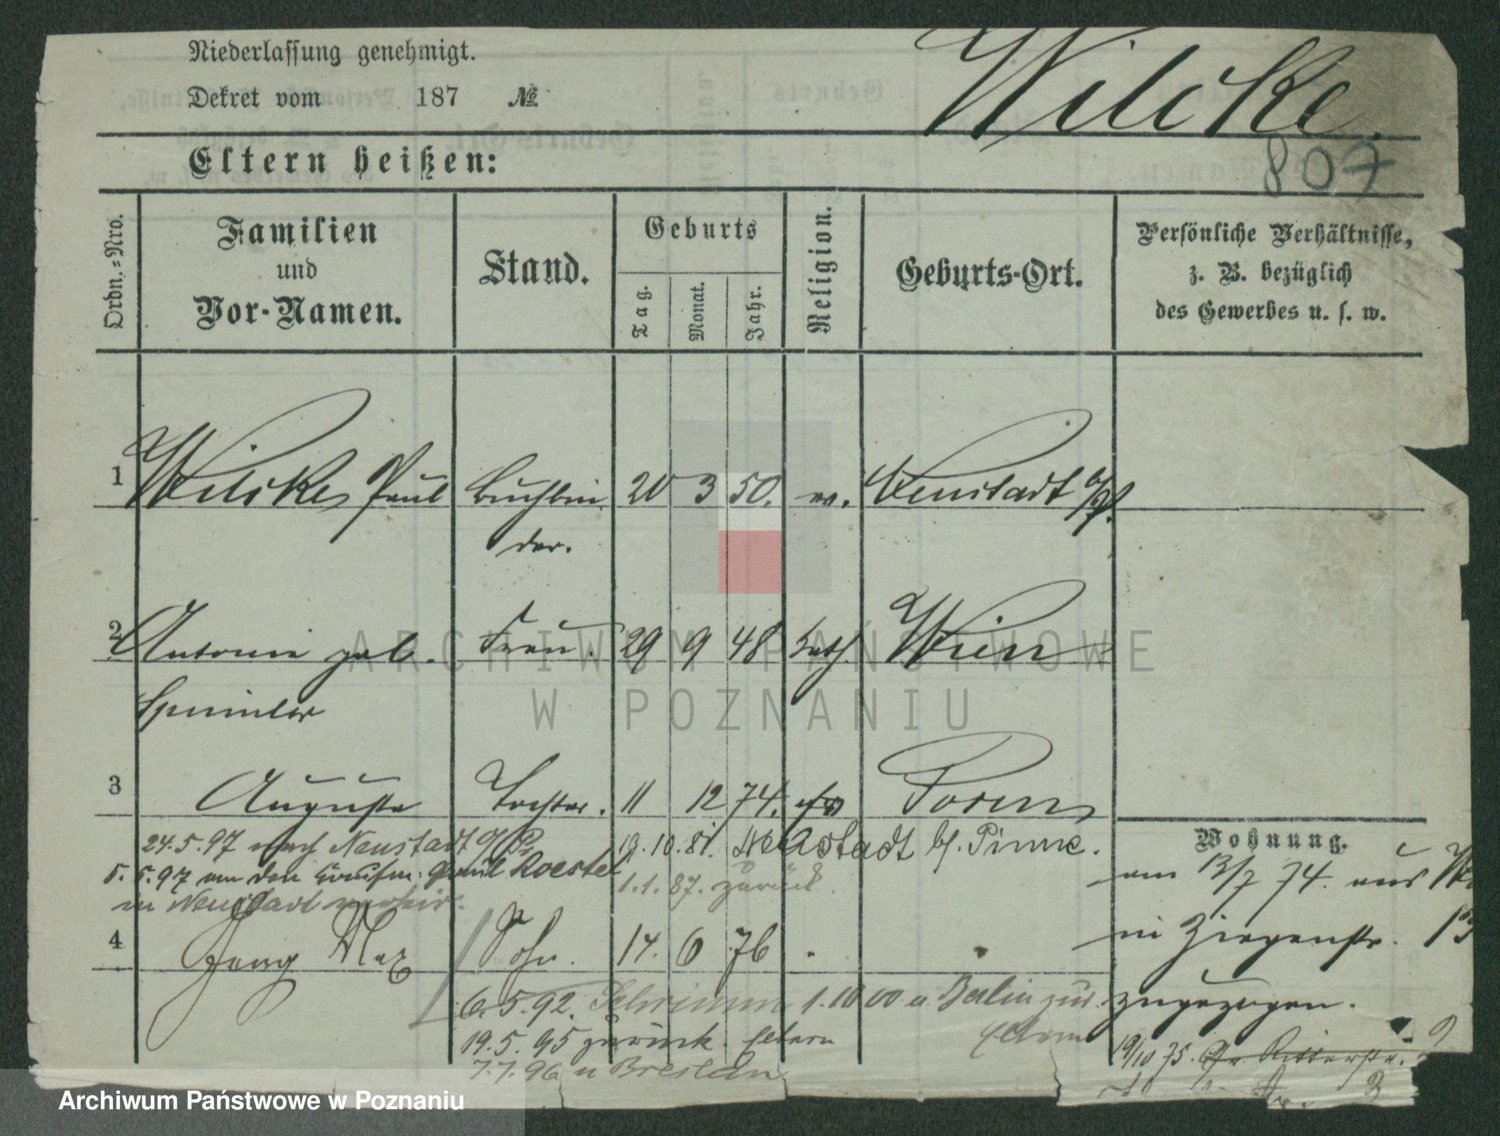 Niederlassung genehmigt.
Dekret vom 187 №
Wilcke.
807
Eltern heißen:
Ordn.-Nro.
Familien
und
Vor-Namen.
Stand.
Geburts
Tag.
Monat.
Jahr.
Religion.
Geburts-Ort.
Persönliche Verhältnisse,
z. B. bezüglich
des Gewerbes u. s. w.
1 Wilcke, Paul Buchbin 20 3 50. ev. Neustadt
der.
2 Antonie geb. Frau. 29 9 48 kath. Wien
3 Auguste Tochter. 11 12 74. Posen
Wohnung.
24.5.97 nach Neustadt 19.10.81. Neustadt b/ Pinne.
5.5.97 an den Kaufm. Roestel 1.1.87. zurück.
in Neustadt
am 13/7 74. aus
in Ziegenstr. 13
zugezogen.
4 Georg Max Sohn. 14. 6 76
6.5.92. Schrimm 1.10 00 a. Berlin zur.
19.5.95 zurück. Eltern Eltern
7.7.96 n Breslau
19/10 75. Gr Ritterstr.
ARCHIWUM PAŃSTWOWE
W POZNANIU
Archiwum Państwowe w Poznaniu